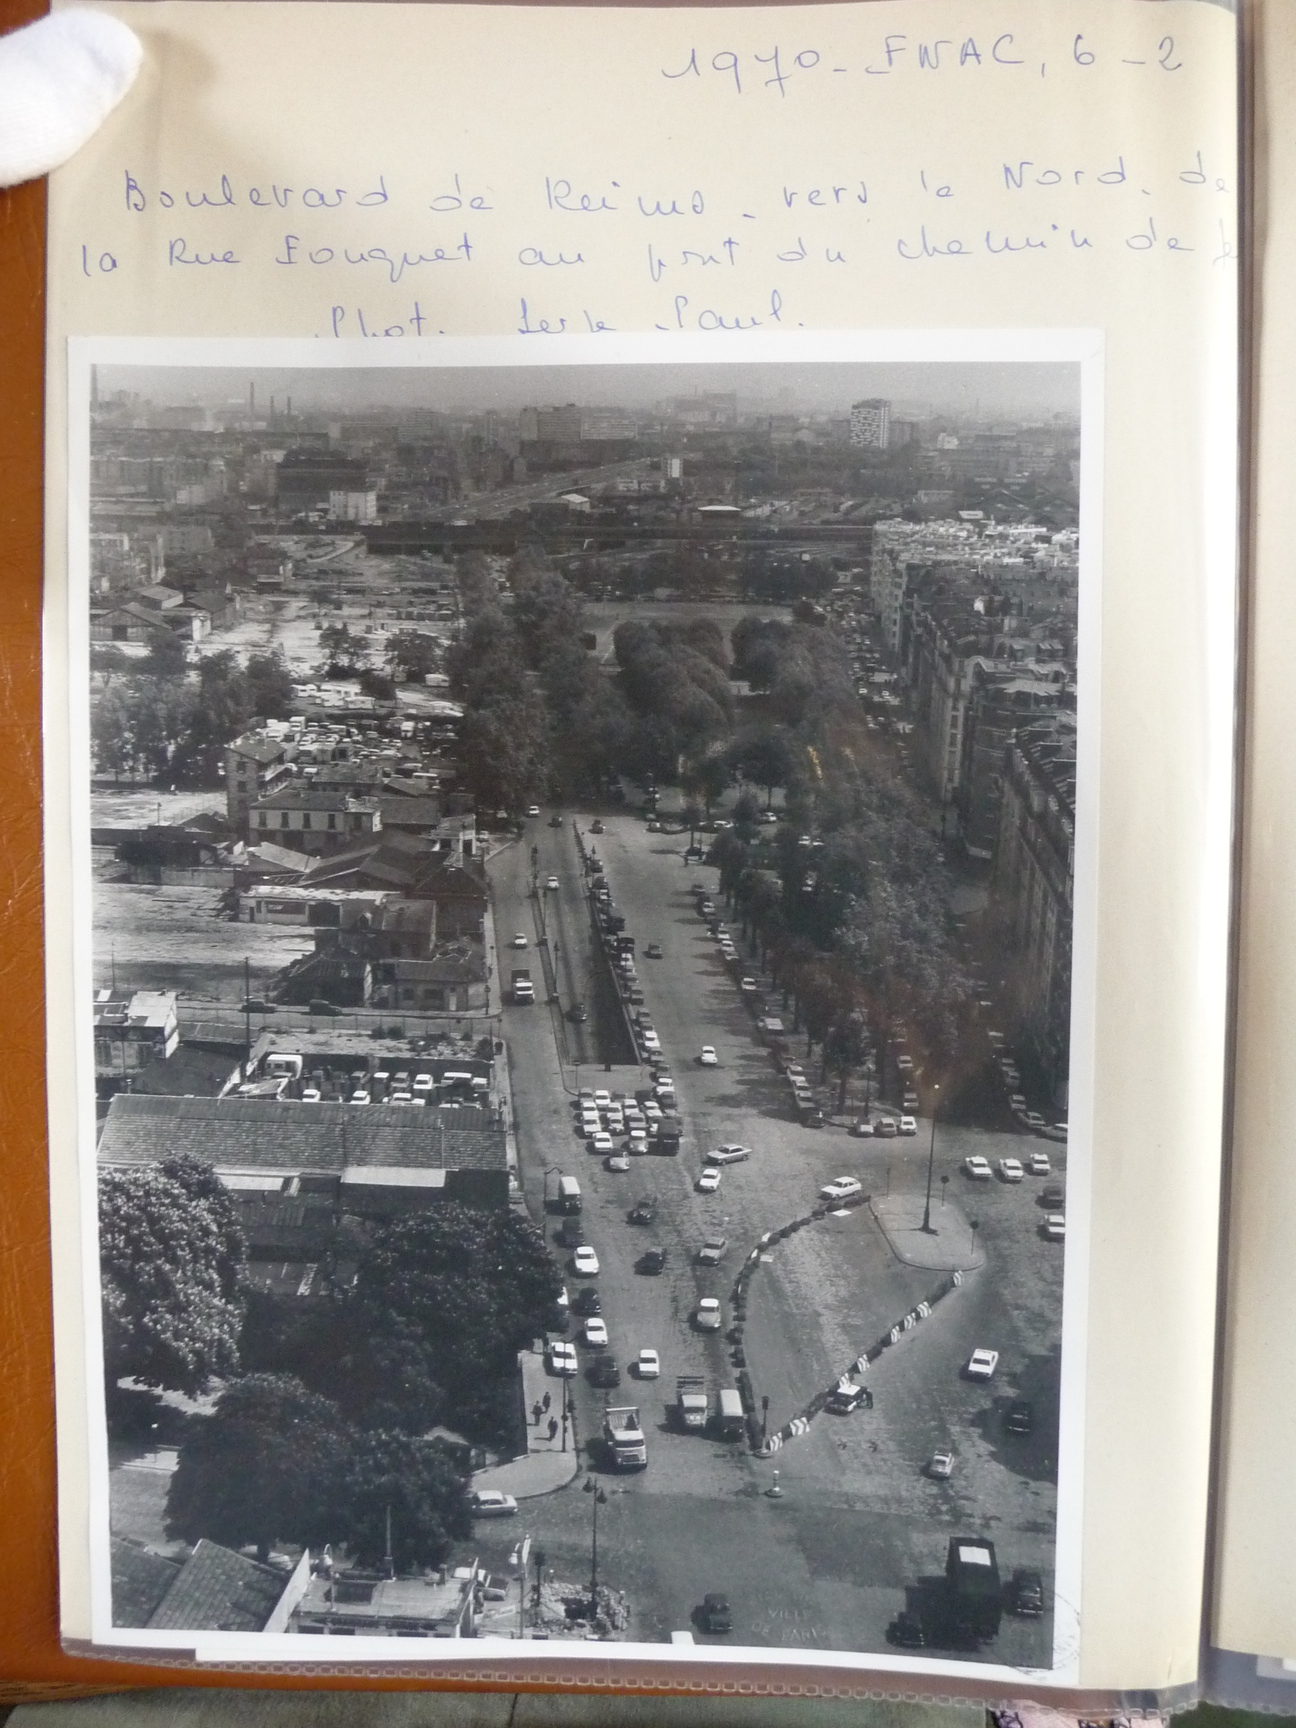 1970 - FNAC, 6 - 2
Boulevard de Reims - vers le Nord, de
la Rue Fouquet au pont du chemin de fe
Phot. Paul.
VILLE
DE PARIS